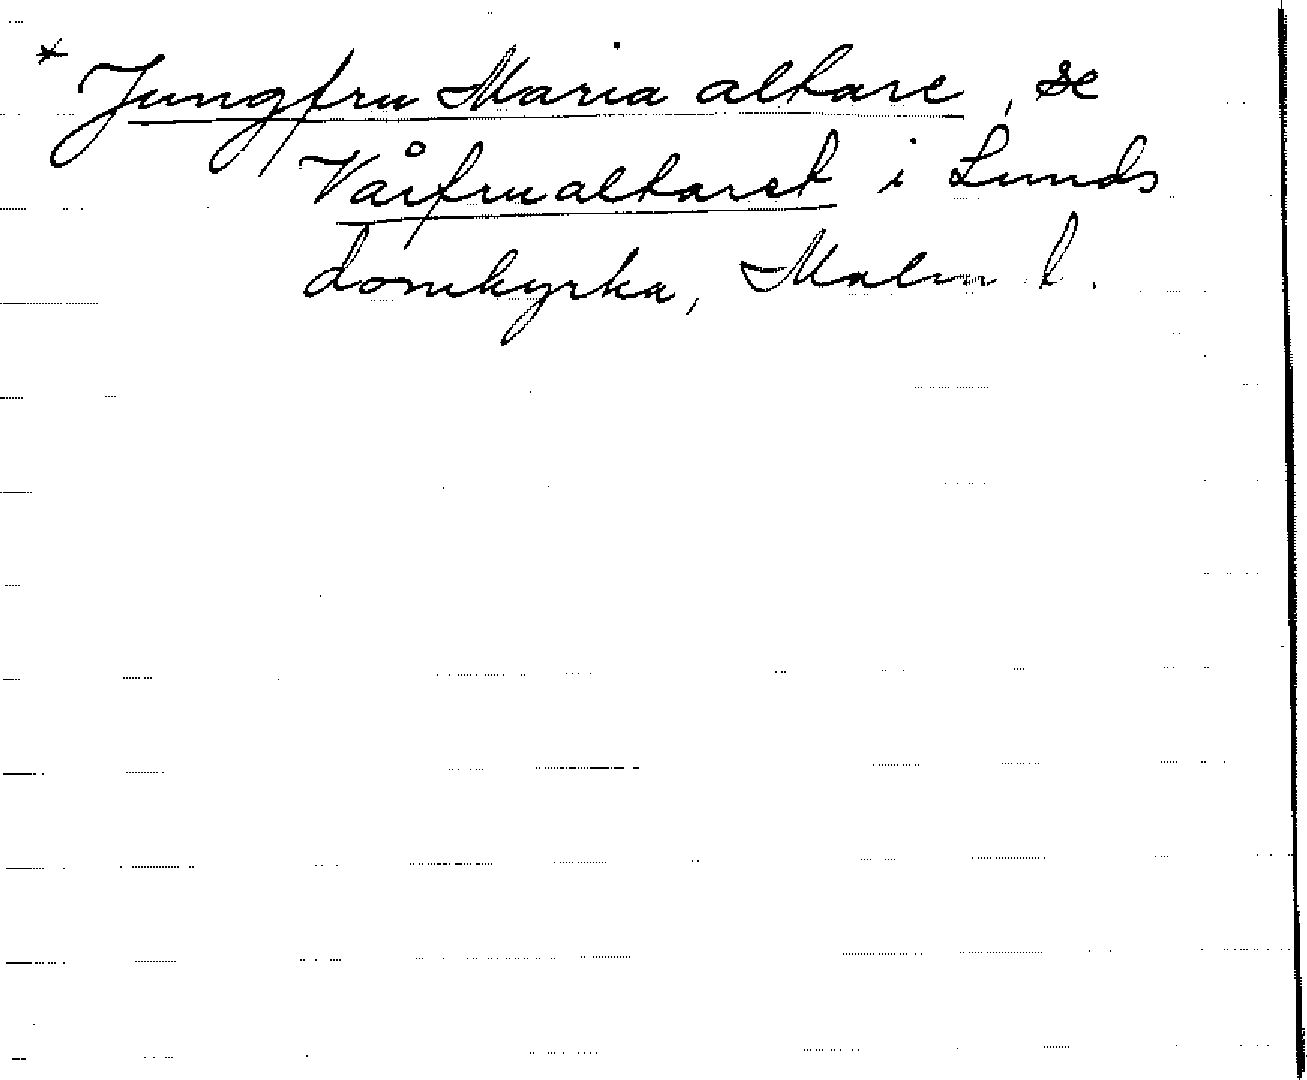 * Jungfru Maria altare, se
Vårfrualtaret i Lunds
domkyrka, Malm l.